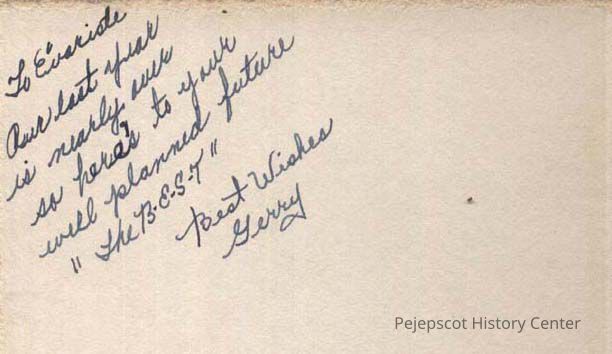 To Evariste
Our last year
is nearly over
so here's to your
well planned future
"The B-E-S-T"
Best Wishes
Gerry
Pejepscot History Center